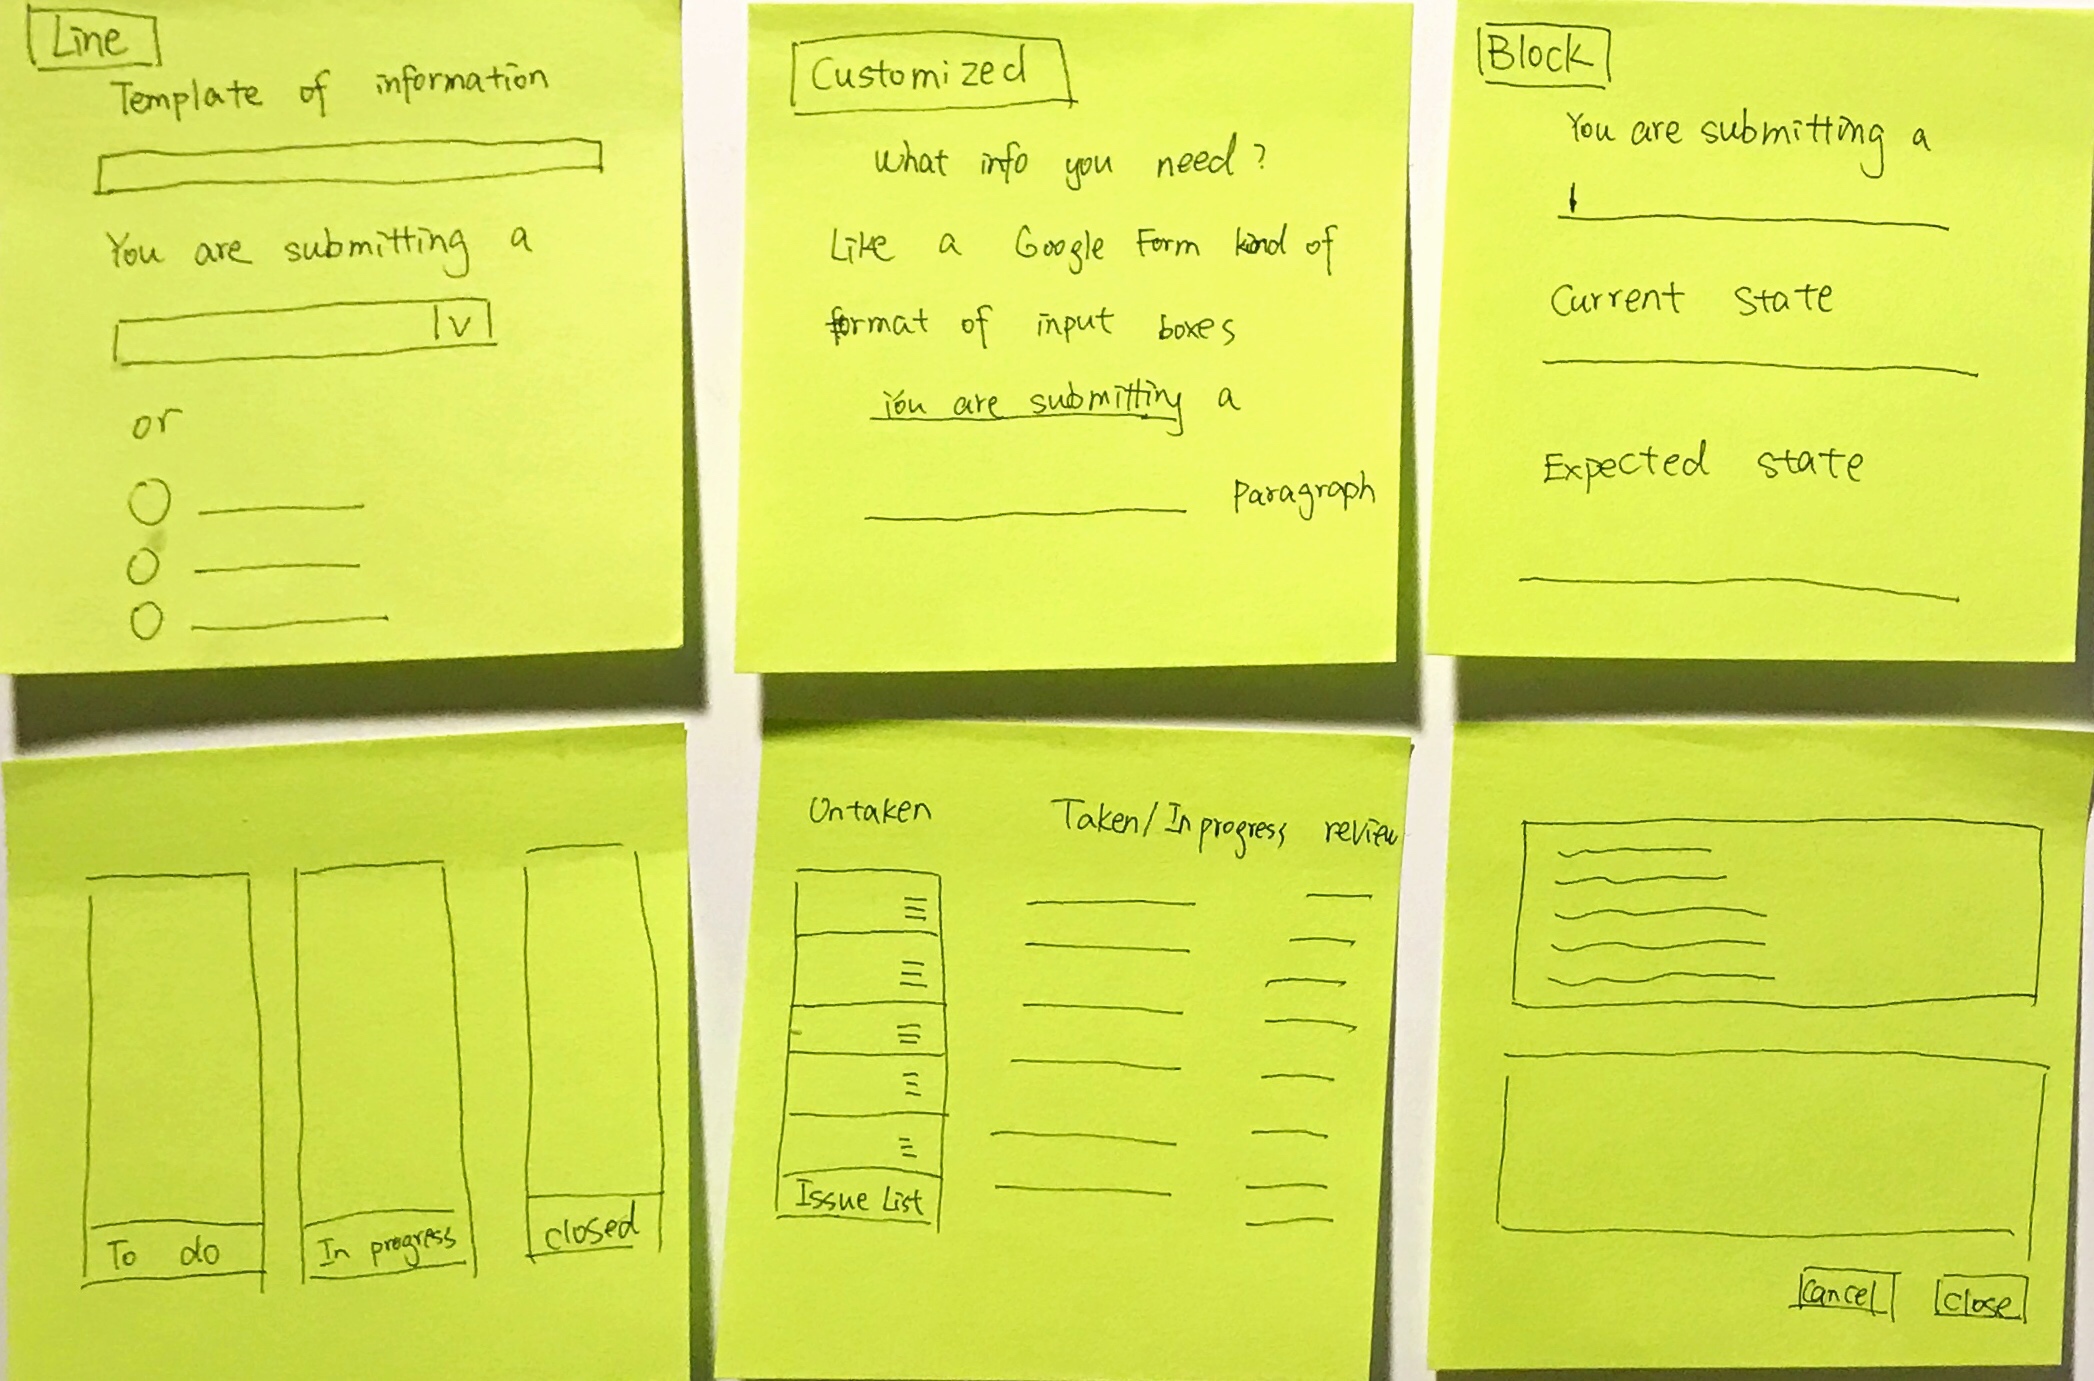 Line
Template of information
You are submitting a
V
or
Customized
What info you need?
Like a Google Form kind of
format of input boxes
You are submitting a
Paragraph
Block
You are submitting a
Current state
Expected state
To do
In progress
closed
Untaken
Taken/In progress
review
Issue List
Cancel
Close